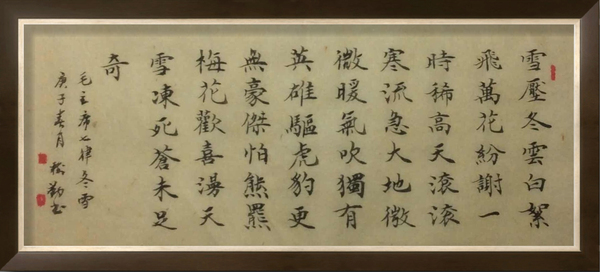 雪壓冬雲白絮
飛萬花紛謝一
時稀高天滾滾
寒流急大地微
微暖氣吹獨有
英雄驅虎豹更
無豪傑怕熊羆
梅花歡喜漫天
雪凍死蒼未足
奇
毛主席七律冬雪
庚子春月 松勤书